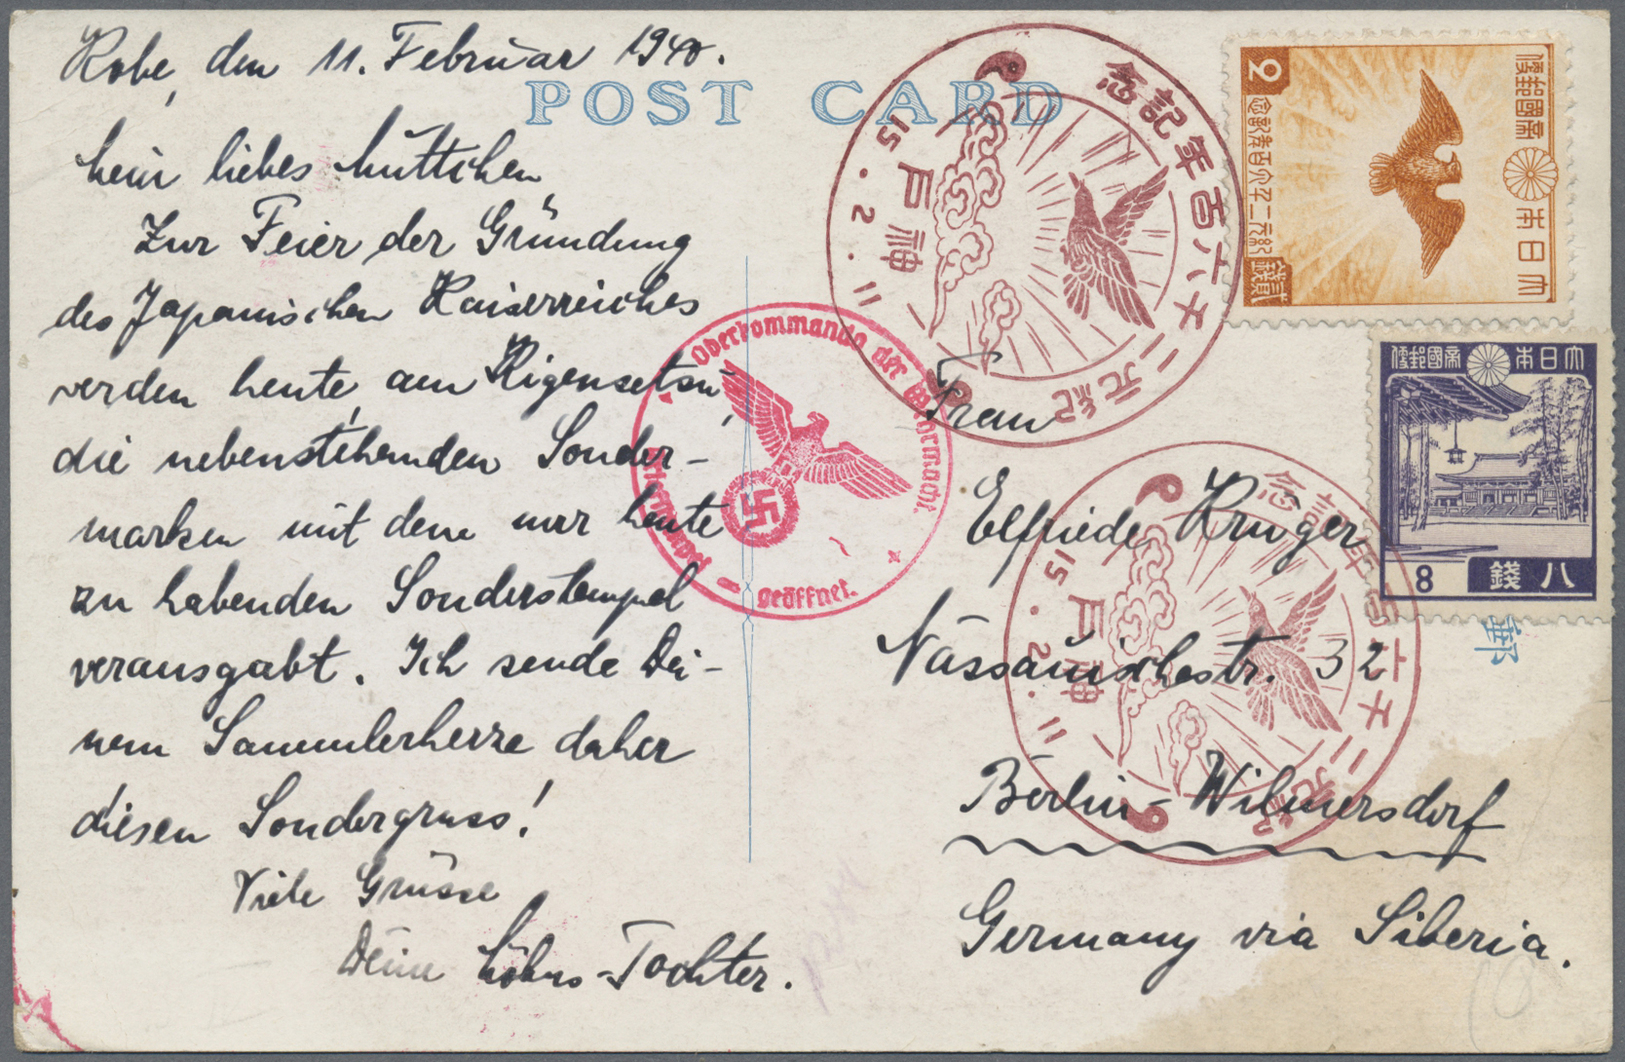 Kobe, den 11. Februar 1940.
POST CARD
Mein liebes Muttchen,
Zur Feier der Gründung
des Japanischen Kaiserreiches
werden heute, am Kigensetsu,
die nebenstehenden Sonder-
marken mit dem nur heute
zu habenden Sonderstempel
verausgabt. Ich sende Dei-
nem Sammlerherze daher
diesen Sondergruss!
Viele Grüsse
Deine Töchter.
Frau
Elfriede Krüger
Nassauischestr. 32
Berlin-Wilmersdorf
Germany via Siberia.
Oberkommando der Wehrmacht
geöffnet.
紀元二千六百年記念
神戸
15.2.11
紀元二千六百年記念
神戸
15.2.11
大日本帝國郵便
紀元二千六百年記念
貳錢
2
大日本帝國郵便
八錢
8
郵